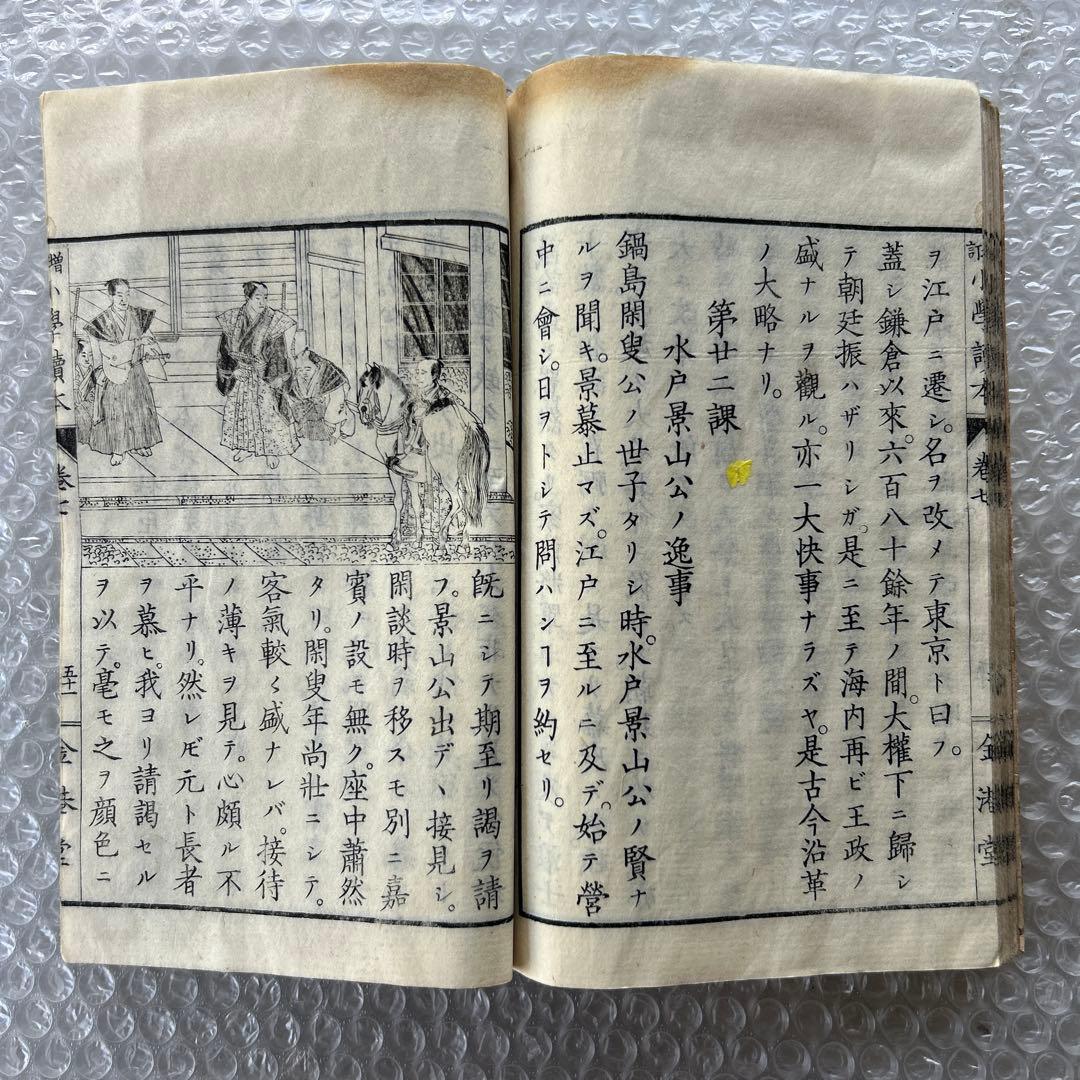 ヲ江戸ニ遷シ。名ヲ改メテ東京ト曰フ。
蓋シ鎌倉以來。六百八十餘年ノ間。大權下ニ歸シ
テ朝廷振ハザリシガ。是ニ至テ海内再ビ王政ノ
盛ナルヲ觀ル。亦一大快事ナラズヤ。是古今沿革
ノ大略ナリ。
第廿二課
水戸景山公ノ逸事
鍋島閑叟公ノ世子タリシ時。水戸景山公ノ賢ナ
ルヲ聞キ。景慕止マズ。江戸ニ至ルニ及デ。始テ營
中ニ會シ。日ヲトシテ問ハンヿヲ約セリ。
旣ニシテ期至リ謁ヲ請
フ。景山公出デヽ接見シ。
閑談時ヲ移スモ別ニ嘉
賓ノ設モ無ク。座中蕭然
タリ。閑叟年尚壯ニシテ。
客氣較〻盛ナレバ。接待
ノ薄キヲ見テ。心頗ル不
平ナリ。然レ𪜈元ト長者
ヲ慕ヒ。我ヨリ請謁セル
ヲ以テ。毫モ之ヲ顏色ニ
小學讀本
卷七
金港堂